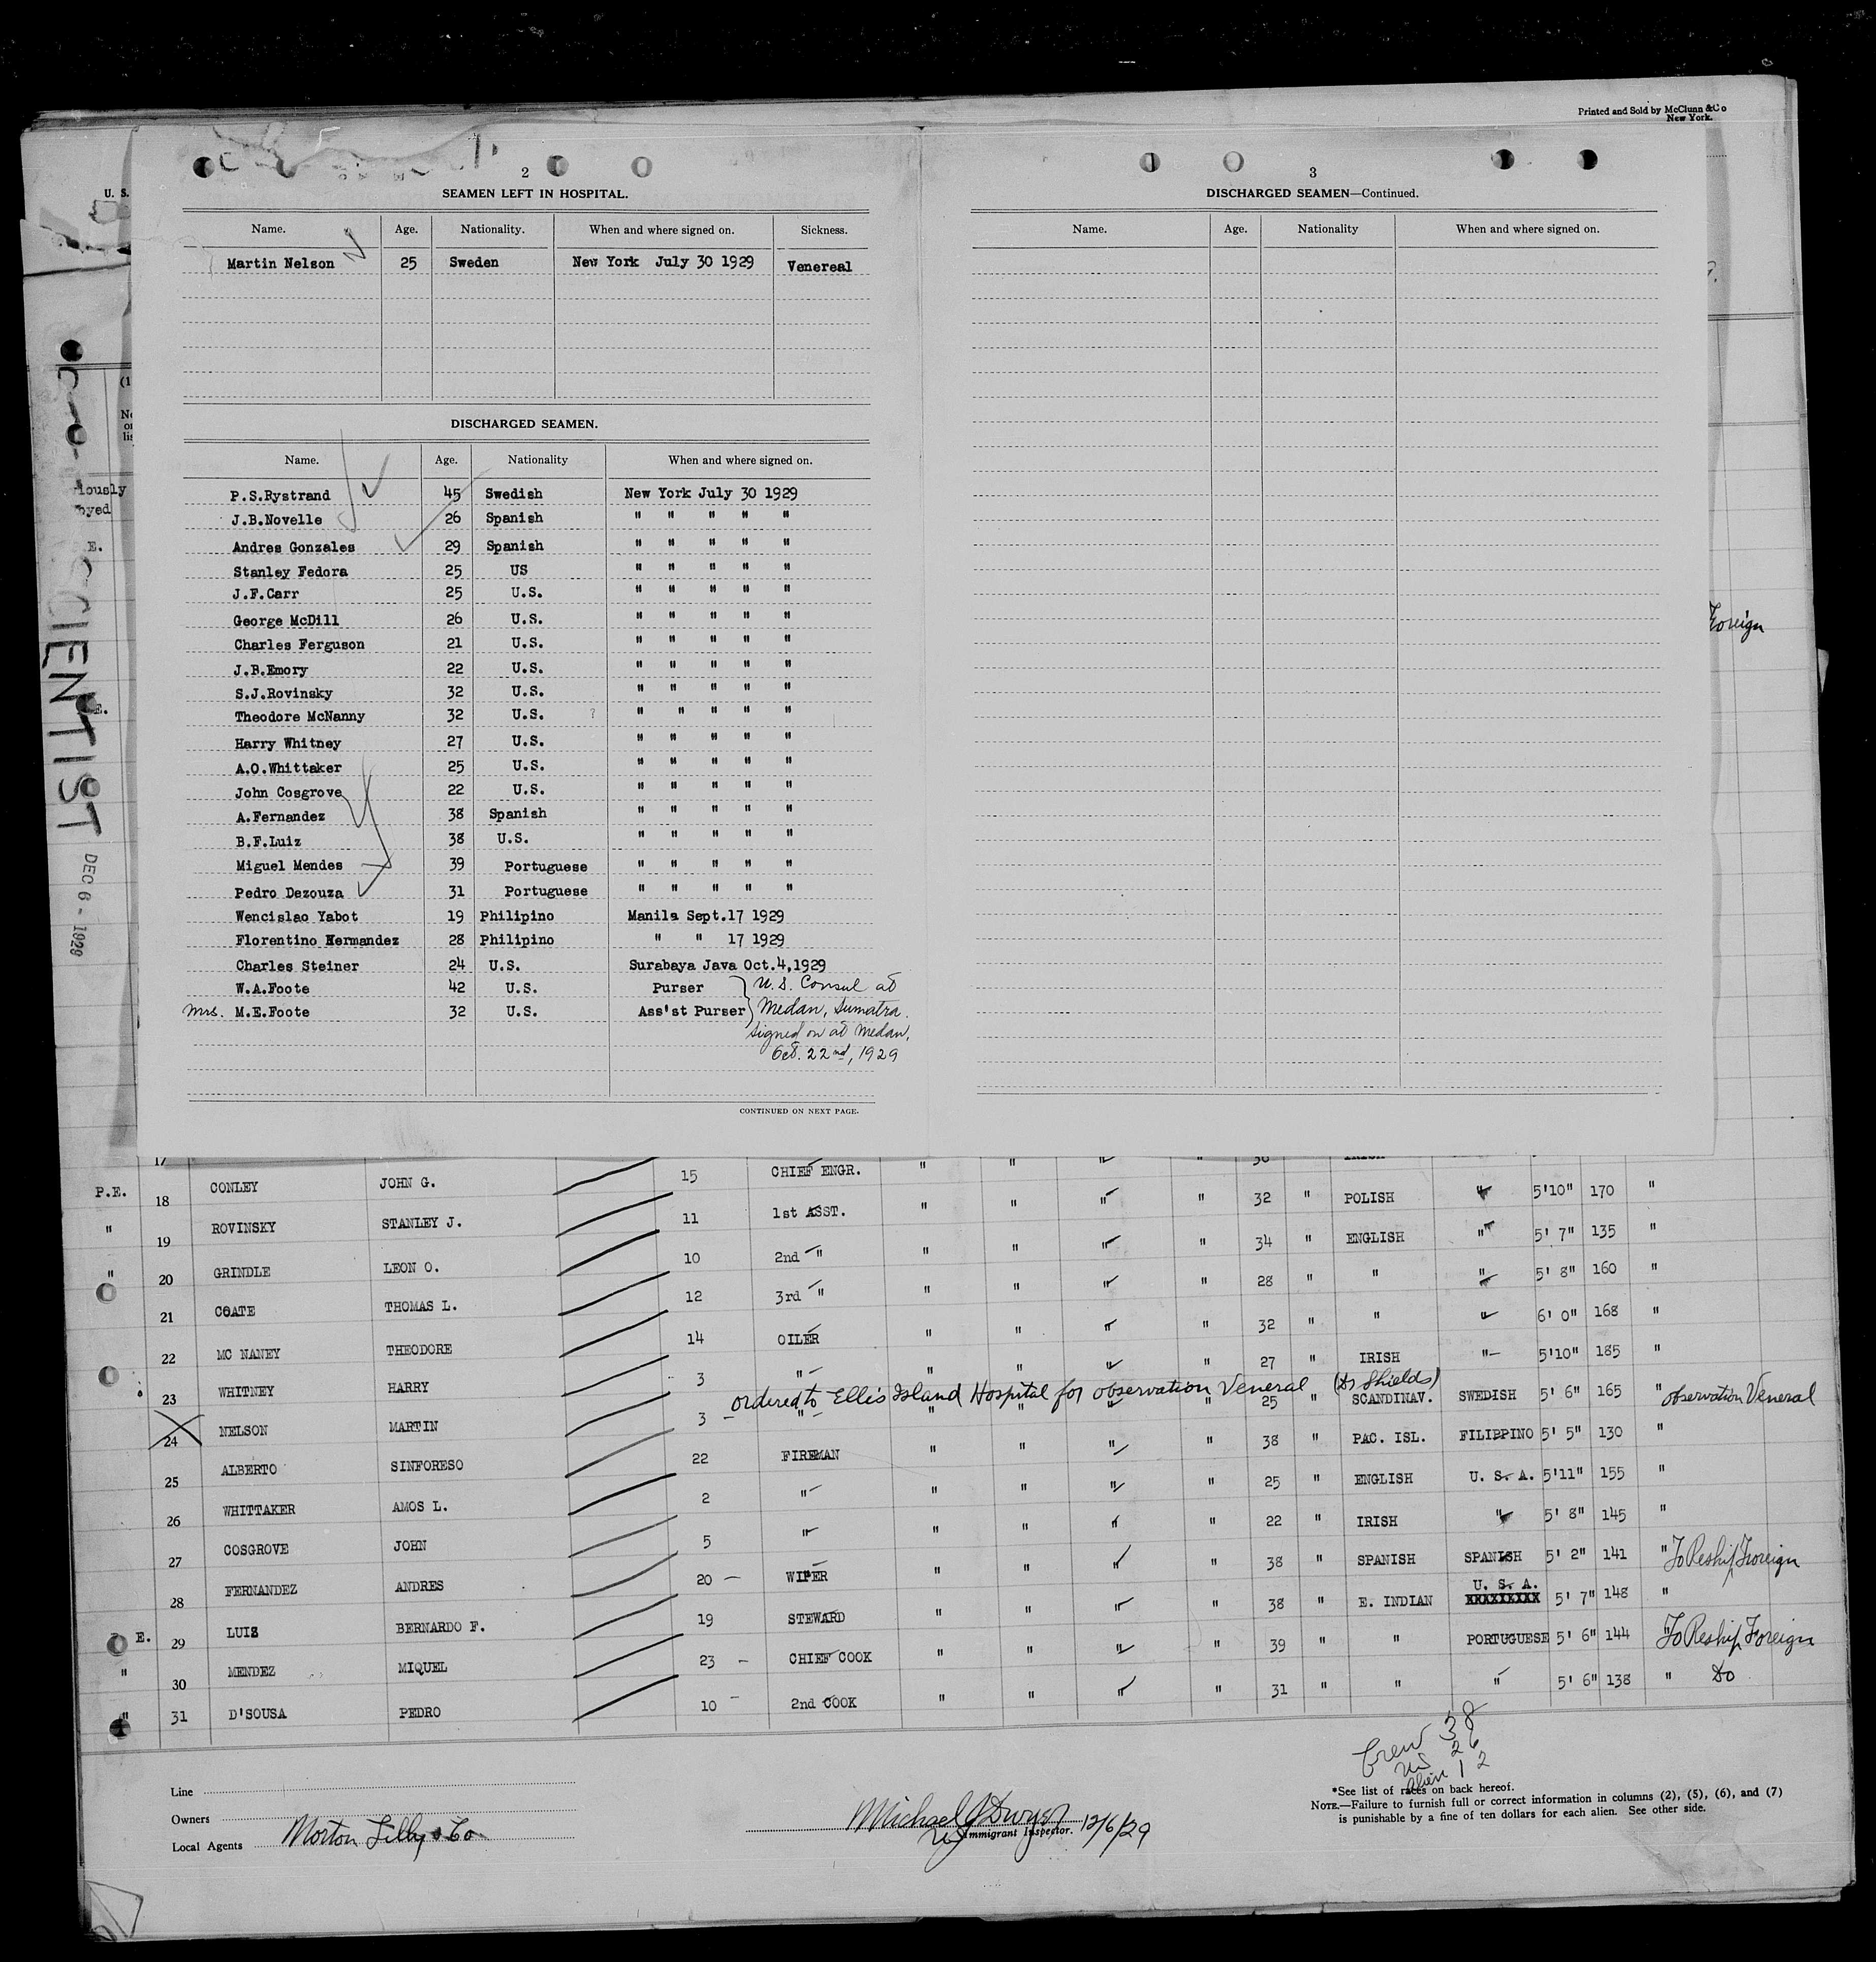 Printed and Sold by McClunn & Co
New York.
U. S.
2
SEAMEN LEFT IN HOSPITAL.
Name. Age. Nationality. When and where signed on. Sickness.
Martin Nelson 25 Sweden New York July 30 1929 Venereal
DISCHARGED SEAMEN.
Name. Age. Nationality When and where signed on.
P.S.Rystrand 45 Swedish New York July 30 1929
J.B.Novelle 26 Spanish " " " " "
Andres Gonzales 29 Spanish " " " " "
Stanley Fedora 25 US " " " " "
J.F.Carr 25 U.S. " " " " "
George McDill 26 U.S. " " " " "
Charles Ferguson 21 U.S. " " " " "
J.B.Emory 22 U.S. " " " " "
S.J.Rovinsky 32 U.S. " " " " "
Theodore McNanny 32 U.S. ? " " " " "
Harry Whitney 27 U.S. " " " " "
A.O.Whittaker 25 U.S. " " " " "
John Cosgrove 22 U.S. " " " " "
A.Fernandez 38 Spanish " " " " "
B.F.Luiz 38 U.S. " " " " "
Miguel Mendes 39 Portuguese " " " " "
Pedro Dezouza 31 Portuguese " " " " "
Wencislao Yabot 19 Philipino Manila Sept.17 1929
Florentino Hermandez 28 Philipino " " 17 1929
Charles Steiner 24 U.S. Surabaya Java Oct.4,1929
W.A.Foote 42 U.S. Purser U.S. Consul at
Mrs. M.E.Foote 32 U.S. Ass'st Purser Medan, Sumatra.
signed on at Medan,
Oct. 22nd, 1929
CONTINUED ON NEXT PAGE.
3
DISCHARGED SEAMEN—Continued.
Name. Age. Nationality When and where signed on.
iously
oyed
E.
E.
SCIENTIST DEC 6 - 1929
Foreign
17
P.E. 18 CONLEY JOHN G. 15 CHIEF ENGR. " " " " 36 IRISH
" 19 ROVINSKY STANLEY J. 11 1st ASST. " " " " 32 " POLISH " 5'10" 170 "
" 20 GRINDLE LEON O. 10 2nd " " " " " 34 " ENGLISH " 5' 7" 135 "
21 COATE THOMAS L. 12 3rd " " " " " 28 " " " 5' 8" 160 "
22 MC NANEY THEODORE 14 OILER " " " " 32 " " " 6' 0" 168 "
23 WHITNEY HARRY 3 " " " " " 27 " IRISH " 5'10" 185 "
ordered to Ellis Island Hospital for observation Veneral (Dr Shields)
24 NELSON MARTIN 3 " " " " " 25 " SCANDINAV. SWEDISH 5' 6" 165 " observation Veneral
25 ALBERTO SINFORESO 22 FIREMAN " " " " 38 " PAC. ISL. FILIPPINO 5' 5" 130 "
26 WHITTAKER AMOS L. 2 " " " " " 25 " ENGLISH U. S. A. 5'11" 155 "
27 COSGROVE JOHN 5 " " " " " 22 " IRISH " 5' 8" 145 "
28 FERNANDEZ ANDRES 20 — WIPER " " " " 38 " SPANISH SPANISH 5' 2" 141 " To Reship Foreign
E. 29 LUIS BERNARDO F. 19 STEWARD " " " " 38 " E. INDIAN U. S. A. 5' 7" 148 "
" 30 MENDEZ MIQUEL 23 — CHIEF COOK " " " " 39 " " PORTUGUESE 5' 6" 144 " To Reship Foreign
" 31 D'SOUSA PEDRO 10 — 2nd COOK " " " " 31 " " " 5' 6" 138 " Do
Crew 38
US 26
Alien 12
Line
Owners
Local Agents Morton Lilly & Co
Michael J Dwyer 12/6/29
Immigrant Inspector.
*See list of races on back hereof.
NOTE.—Failure to furnish full or correct information in columns (2), (5), (6), and (7)
is punishable by a fine of ten dollars for each alien. See other side.